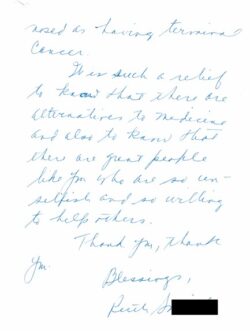 nosed as having terminal
Cancer.
It is such a relief
to know that there are
alternatives to medicine
and also to know that
there are great people
like you who are so un-
selfish and so willing
to help others.
Thank you, thank
you.
Blessings,
Ruth